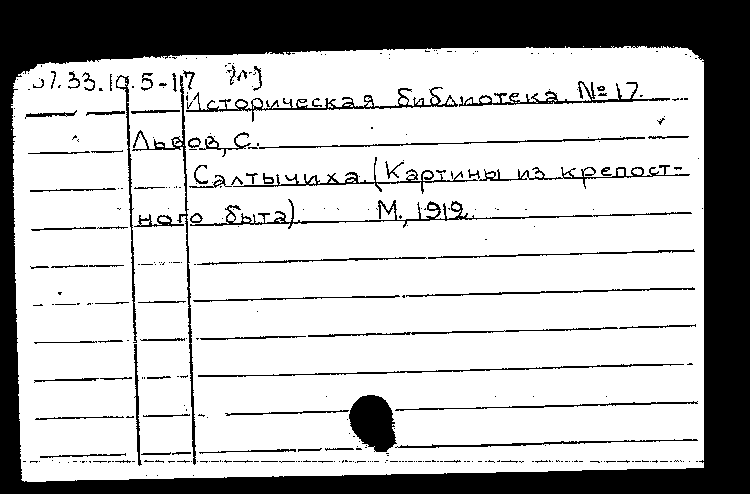 37.33.10.5-17
Историческая библиотека. № 17.
Львов, С.
Салтычиха. (Картины из крепост-
ного быта). М., 1912.